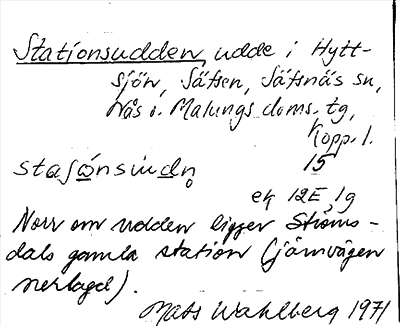 Stationsudden, udde i Hytt-
sjön, Säfsen, Säfsnäs sn,
Nås o. Malungs doms. tg,
Kopp. l.
15
staʃónsùdn̥
ek 12E, 1g
Norr om udden ligger Ströms-
dals gamla station (järnvägen
nerlagd).
Mats Wahlberg 1971